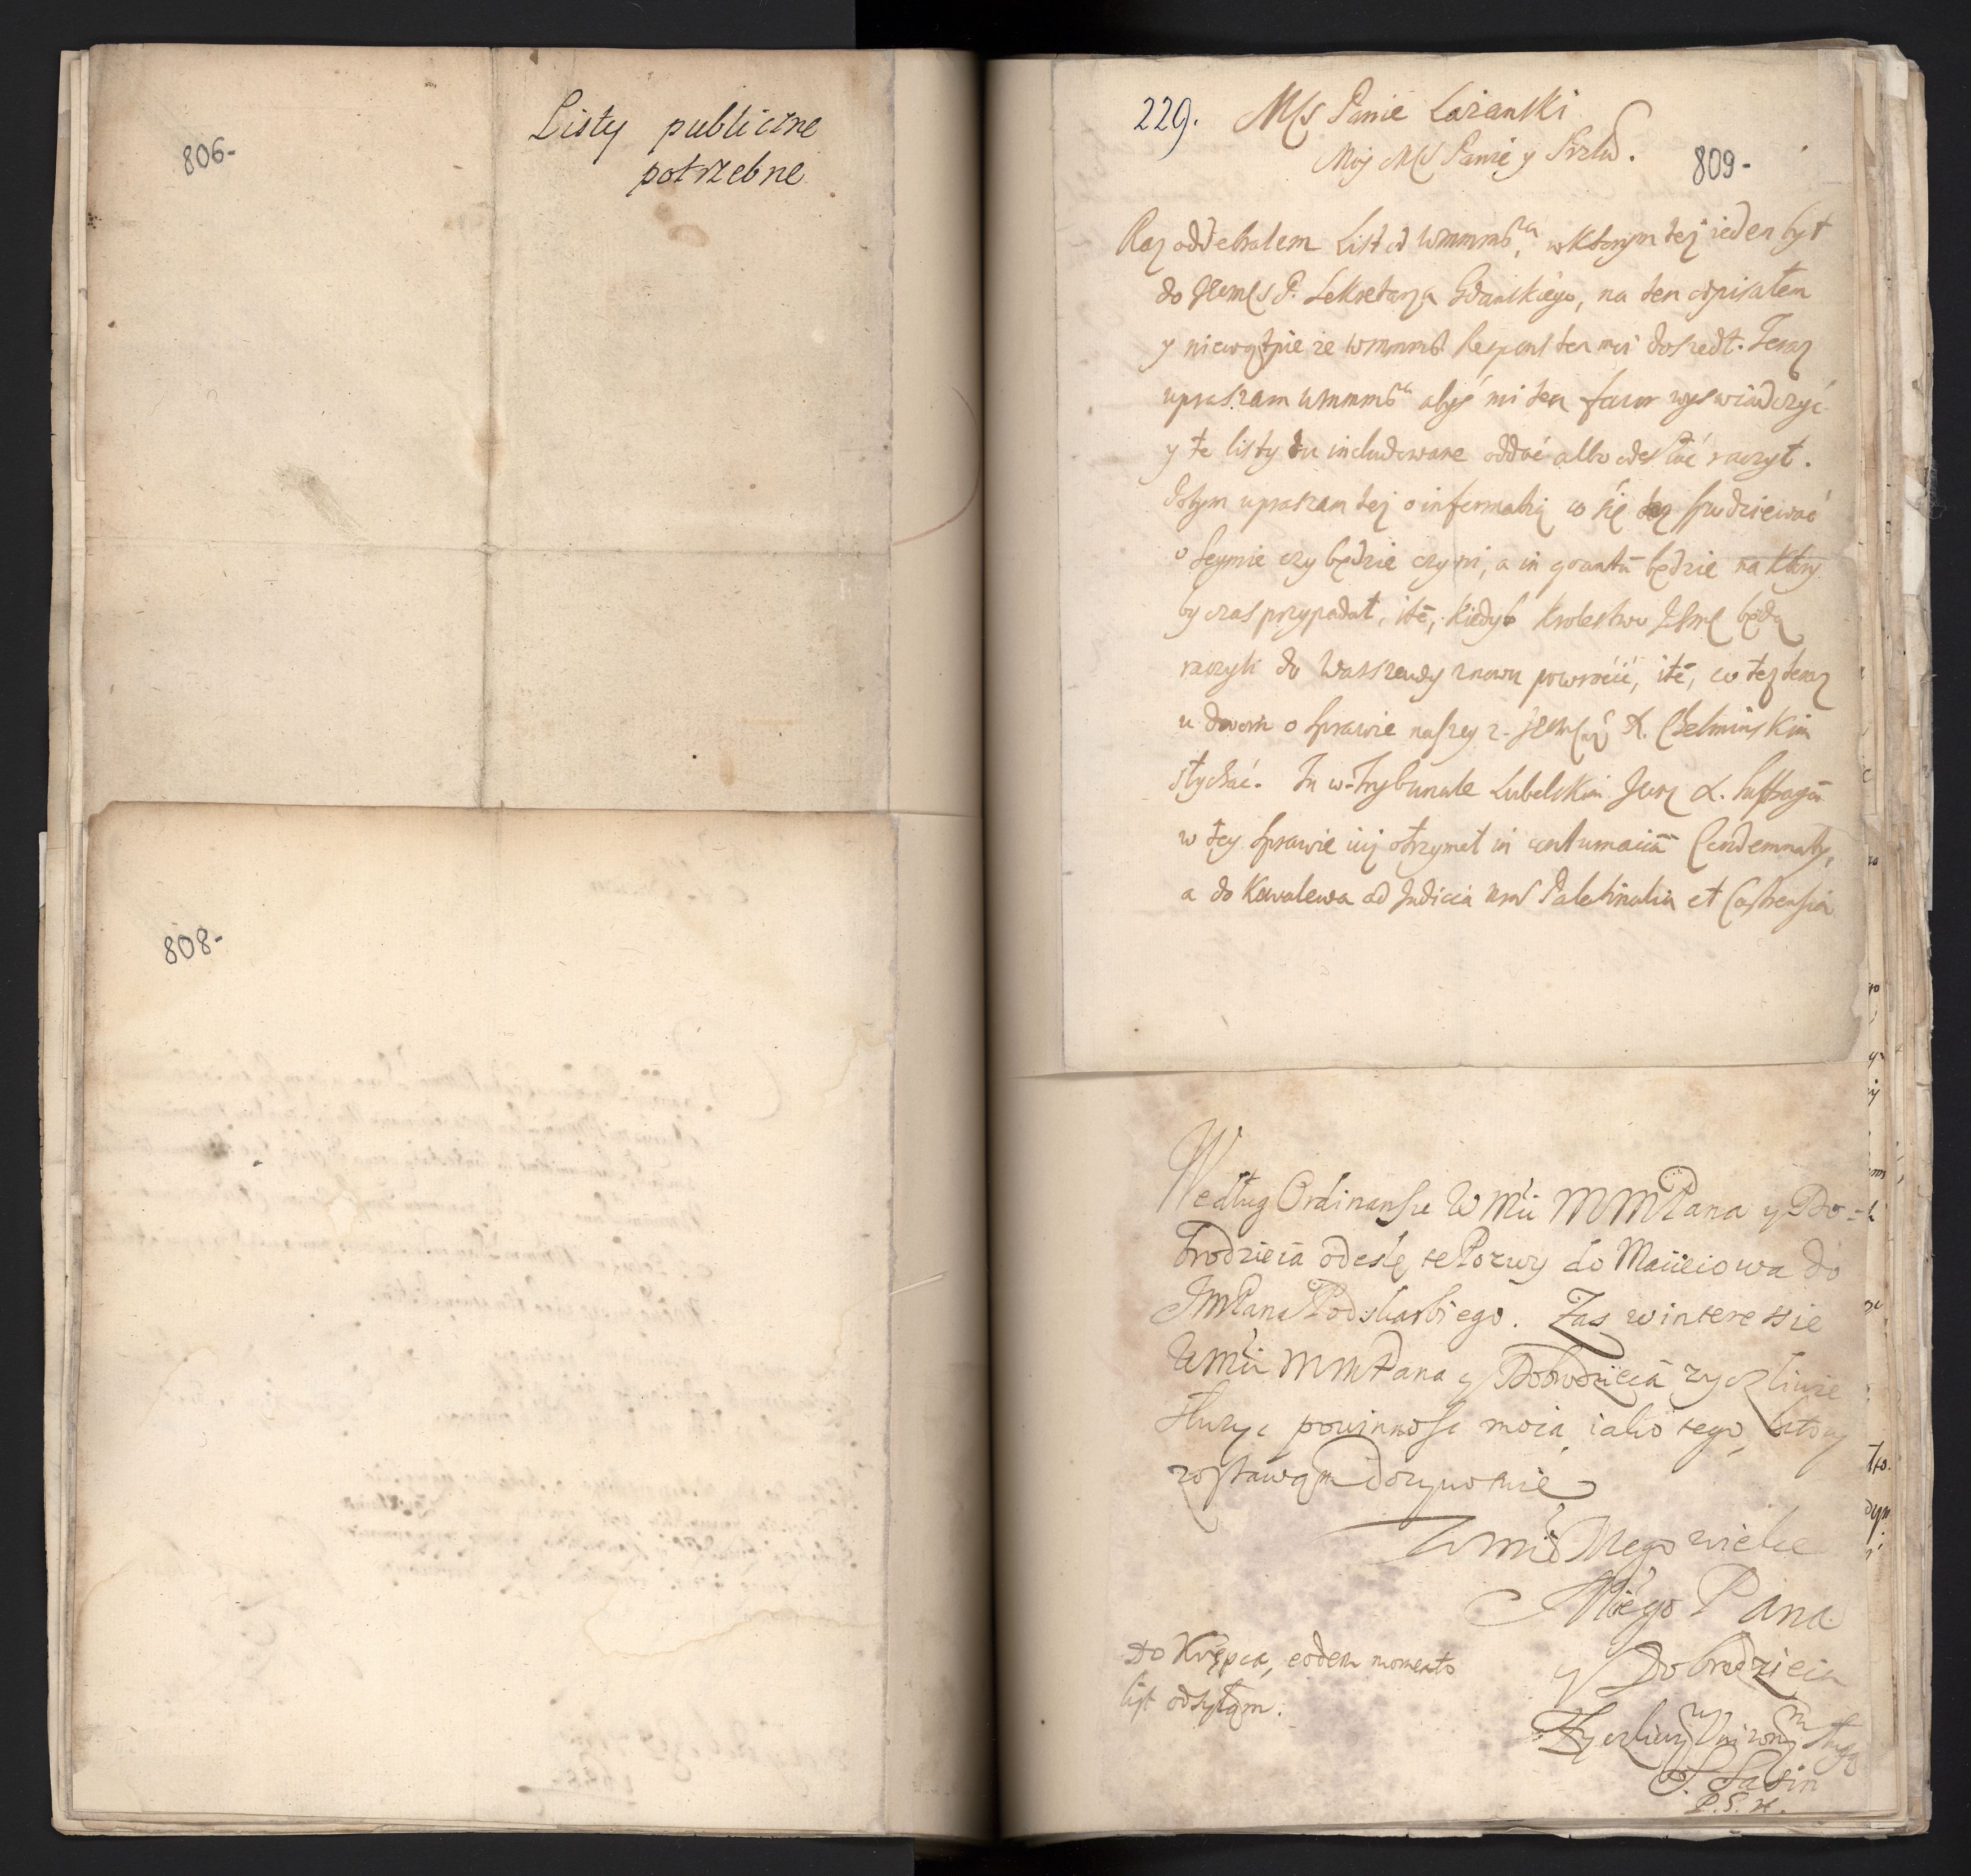 806-
Listy publiczne
potrzebne
808-
229. Mći Panie Łożanski
Moy Mći Panie y
809-
Raz oddebrałem List od Wmmmść, w ktorym tez ieden był
do P. Sekretarza Gdanskiego, na ten odpisałem
y niewątpie ze Wmmmść Respons ten moi doszedł. Teraz
upraszam Wmmmść abyś mi ten favor wyswiadczyć
y te listy tu includowane oddać albo odesłać raczył.
Potym upraszam tez o informatią co się spudziewać
o Seymie czy będzie czy ni, a in quantū będzie na ktory
by czas przypadał, itē, kiedyb Krolestwo będą
raczyli do Warszawy znowu powrócić, itē, co tez teraz
u dworu o sprawie naszey z X. Chelminskim
słychać. Tu w Trybunale Lubelskim X. Suffragan
w tey sprawie iuz otrzymał in contumaciā Condemnatę,
a do Kowalewa ad Judicia Palatinalia et Castrensia
Według Ordinansu WMći MMPana y Do-
brodzieia odeslę te Pozwy do Maciieiowa do
JmPana Podskarbiego. Zas w interessie
WMći MMPana y Dobrodzieia zyczliwie
słuzyc powinnosc moia iako tego, ktory
zostawam dozywotnie
WMść Mego wielce
Mćiego Pana
y Dobrodzieia
Zyczliwy Unizony sługa
S. Sasin
P. S. K.
Do Krępca, eodem momento
list odsyłąm.